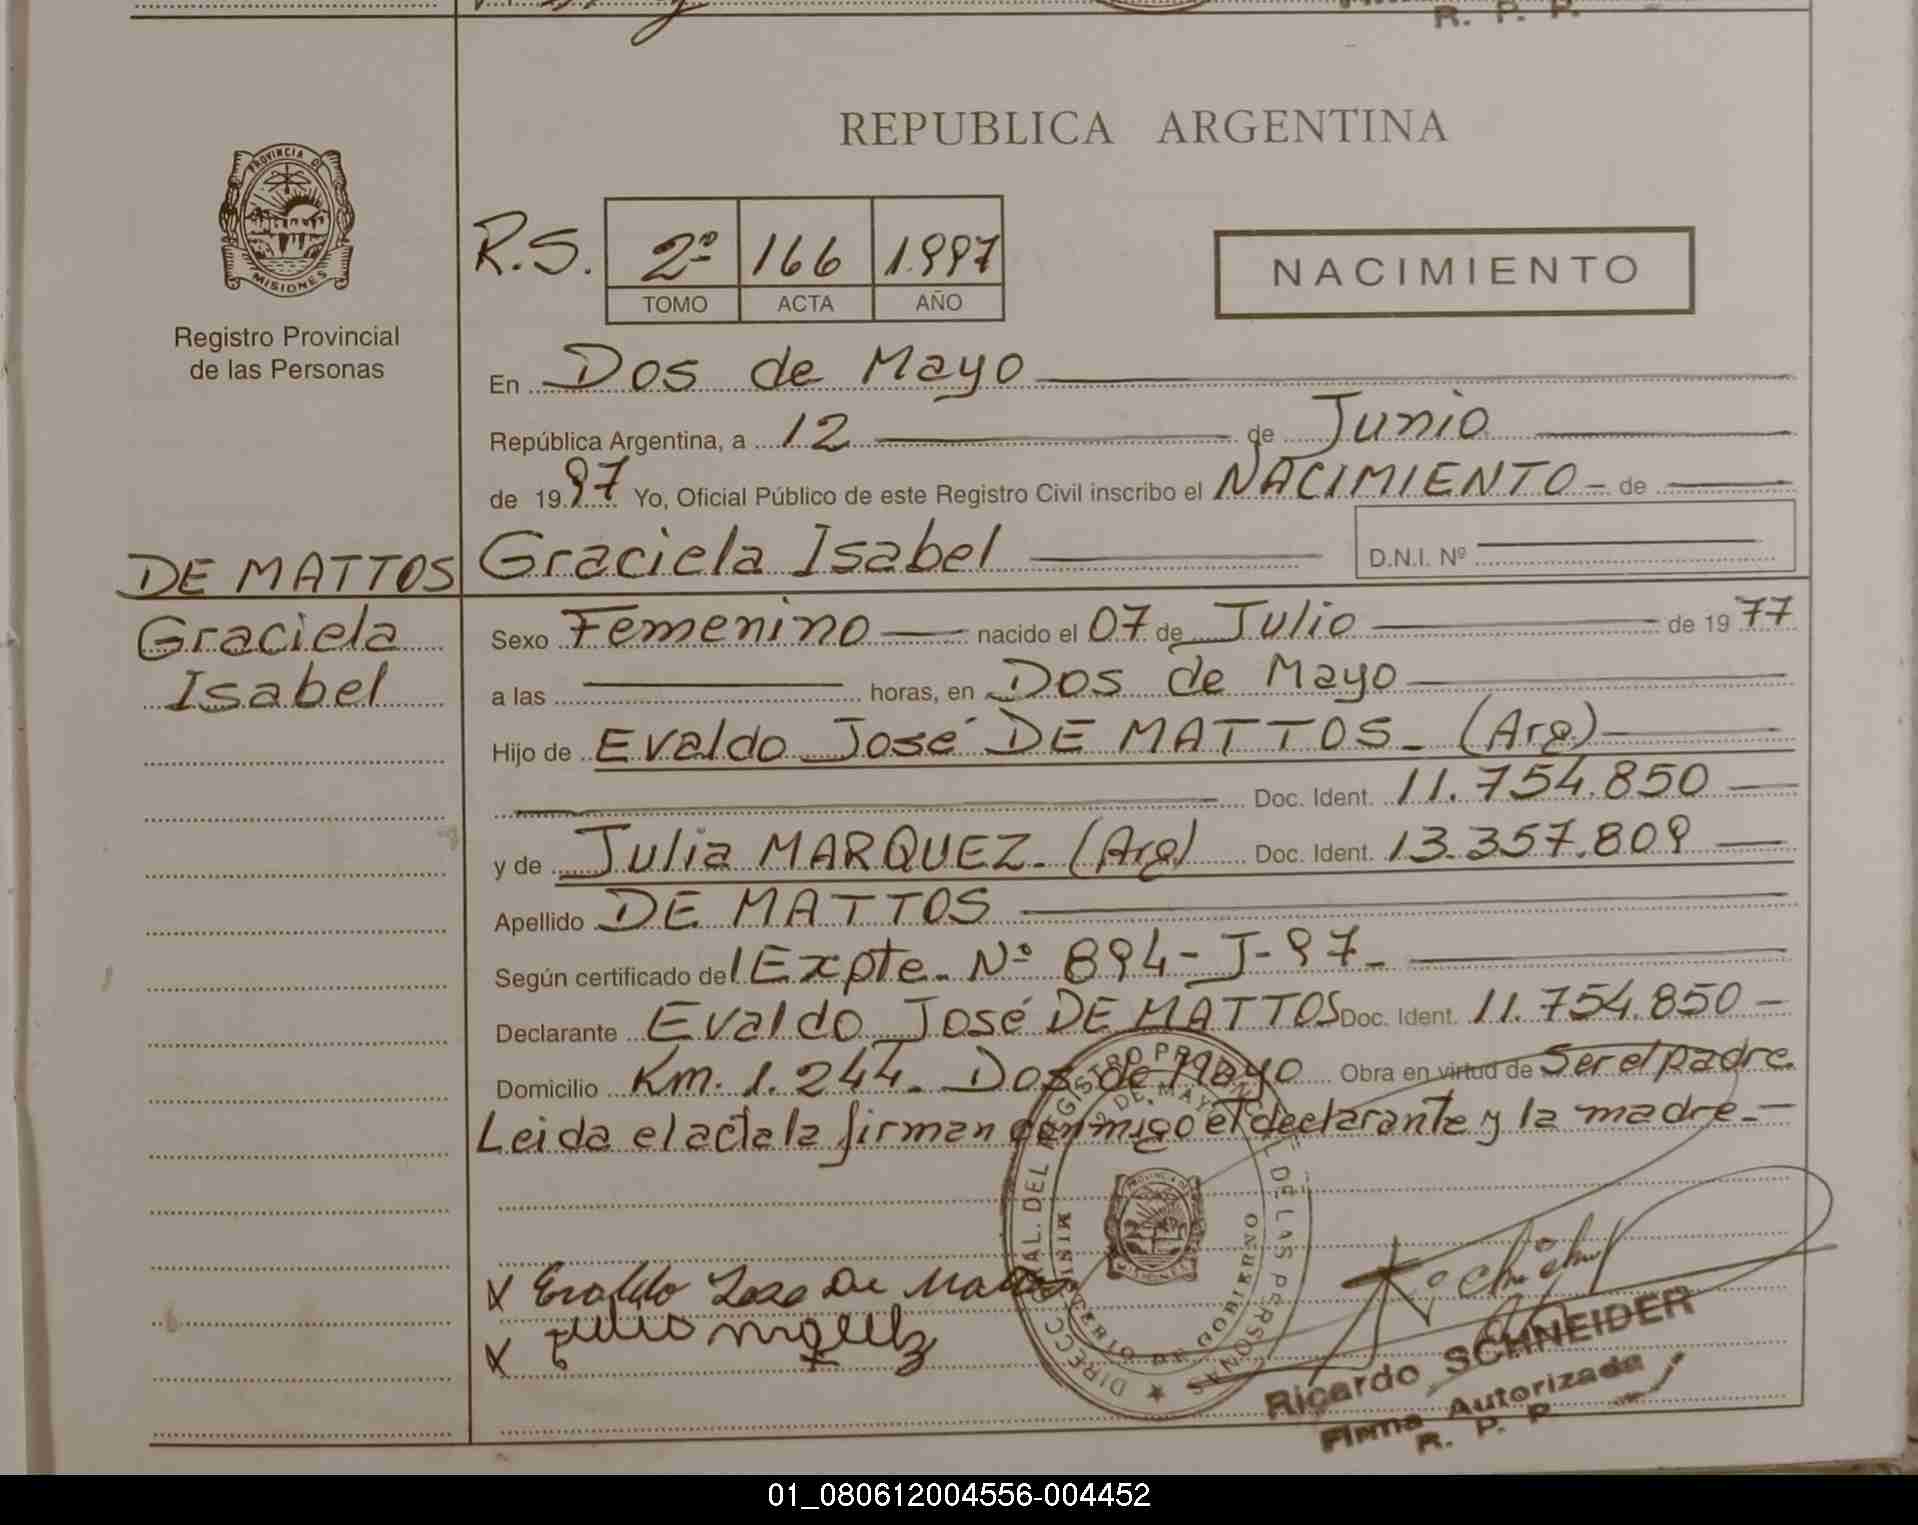 R. P. P.
REPUBLICA ARGENTINA
PROVINCIA DE
MISIONES
Registro Provincial
de las Personas
R.S. 2º 166 1.997
TOMO ACTA AÑO
NACIMIENTO
En Dos de Mayo
República Argentina, a 12 de Junio
de 19 97 Yo, Oficial Público de este Registro Civil inscribo el NACIMIENTO - de
DE MATTOS
Graciela
Isabel
Graciela Isabel
D.N.I. Nº
Sexo Femenino nacido el 07 de Julio de 19 77
a las horas, en Dos de Mayo
Hijo de Evaldo José DE MATTOS - (Arg)
Doc. Ident. 11.754.850
y de Julia MARQUEZ - (Arg) Doc. Ident. 13.357.809
Apellido DE MATTOS
Según certificado del Expte. Nº 894-J-97-
Declarante Evaldo José DE MATTOS Doc. Ident. 11.754.850 -
Domicilio Km. 1.244 - Dos de Mayo Obra en virtud de Ser el padre.
Leida el acta la firman conmigo el declarante y la madre.-
DIRECC GRAL. DEL REGISTRO PROVINCIAL DE LAS PERSONAS
2 DE MAYO
MINISTERIO DE GOBIERNO
MISIONES
x Evaldo Jose De Mattos
x
Ricardo SCHNEIDER
Firma Autorizada
R. P. P.
01_080612004556-004452